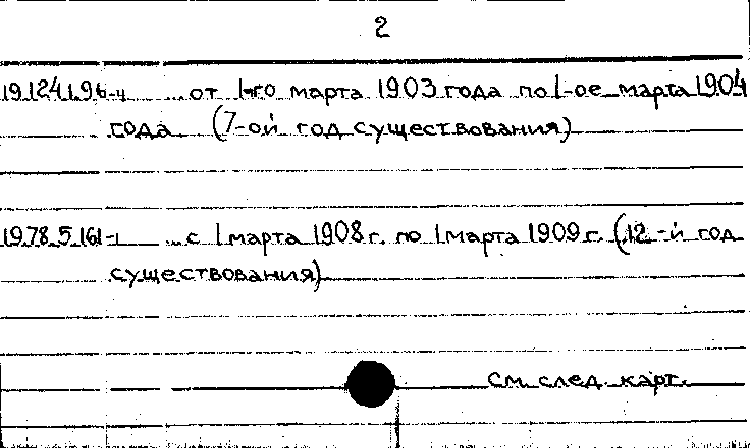 2
19.124.1.96-4 ... от 1-го марта 1903 года по 1-ое марта 1904
года (7-ой год существования)
19.78.5.161-1 ... с 1 марта 1908 г. по 1 марта 1909 г. (12-й год
существования)
см. след. карт.